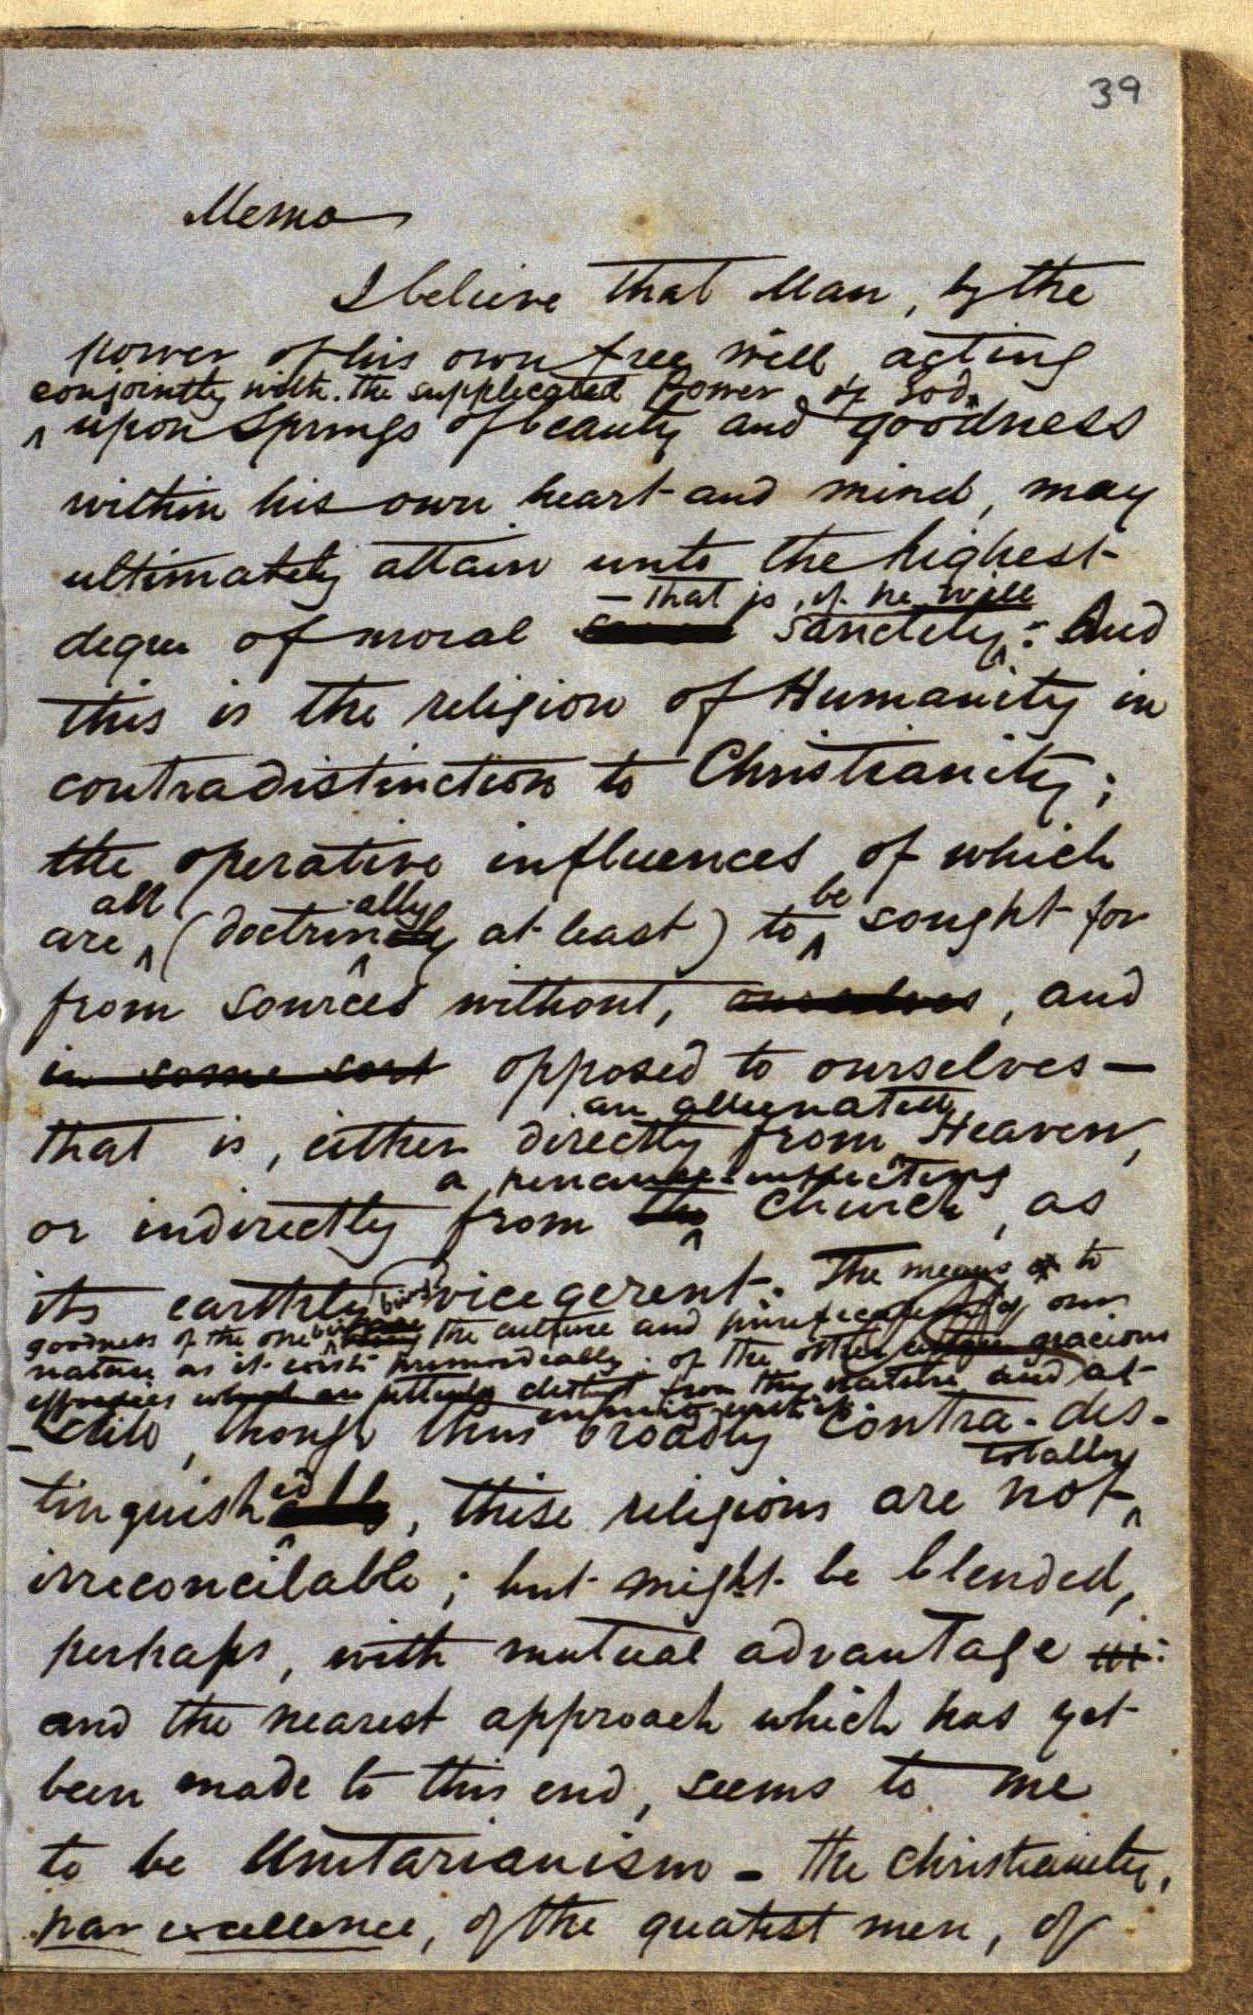 39
Memo
I believe that Man, by the
power of his own free will, acting
conjointly with the supplicated Power of God,
^ upon Springs of beauty and goodness
within his own heart and mind, may
ultimately attain unto the highest
– that is, if he will
degree of moral sanctity ^: And
this is the religion of Humanity in
contradistinction to Christianity;
the operative influences of which
all ally be
are ^ (doctrin^ at least) to ^ sought for
from sources without, ourselves, and
in some sort opposed to ourselves —
an alienated
that is, either directly from Heaven,
a
or indirectly from the ^ Church, as
its earthly vicegerent. The means to
goodness of the one being the culture and purification of our
nature as it exists primordially; of the other gracious
from this nature and at
enmity with it.
– Still, though thus broadly contra-dis-
totally
tinguished, these religions are not ^
irreconcilable; but might be blended,
perhaps, with mutual advantage:
and the nearest approach which has yet
been made to this end, seems to me
to be Unitarianism – the Christianity,
par excellence, of the greatest men, of